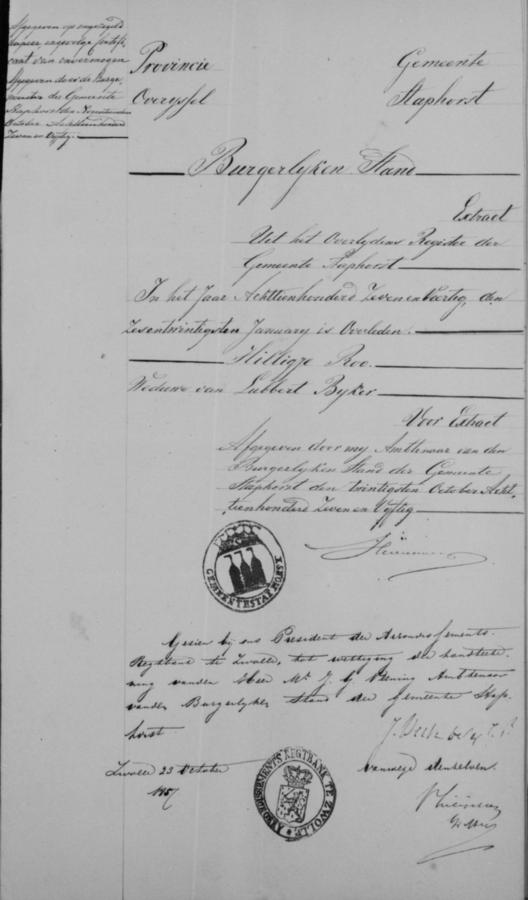 Afgegeven op ongezegeld
papier, ingevolge certifi,
caat van onvermogen
Afgegeven door de Burge,
meester der Gemeente
Staphorst den
October Achttienhonderd
Zeven en Vyftig.
Provincie
Overyssel
Gemeente
Staphorst
Burgerlyken Stand
Extract
Uit het Overlydens Register der
Gemeente Staphorst
In het Jaar Achttienhonderd Zeven en Veertig, den
Zesentwintigsten January is Overleden.
Hilligje Roo.
Weduwe van Lubbert Byker
Voor Extract
Afgegeven door my Ambtenaar van den
Burgerlyken Stand der Gemeente
Staphorst den twintigsten October Acht,
tienhonderd Zeven en Vyftig
GEMEENTE STAPHORST
Gezien by ons President der Arrondissements
Regtbank te Zwolle, tot wettiging der handteeke
ning van den Heer Mr J. G. Ambtenaar
van den Burgerlyken Stand der Gemeente Stap
horst.
Zwolle 23 October
1857
vanwege denzelven.
ARRONDISSEMENTS REGTBANK TE ZWOLLE